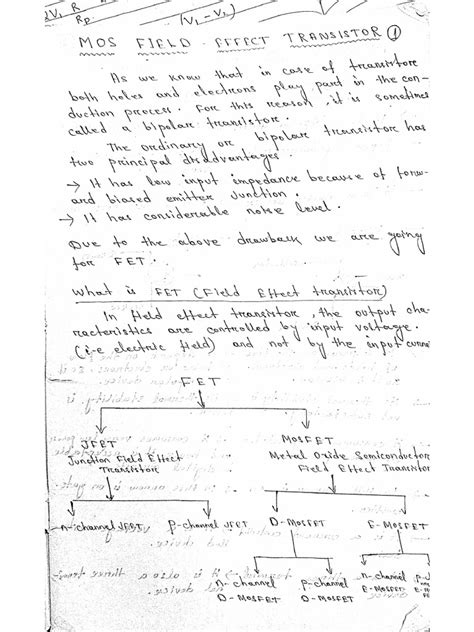 R
Rp
(V₁ - V₁)
MOS FIELD EFFECT TRANSISTOR ①
As we know that in case of transistor
both holes and electrons play part in the con-
duction process. For this reason, it is sometimes
called a bipolar transistor.
The ordinary or bipolar transistor has
two principal disadvantages.
→ It has low input impedance because of forw-
ard biased emitter junction.
→ It has considerable noise level.
Due to the above drawback we are going
for FET.
What is FET (Field Effect transistor)
In field effect transistor, the output cha-
racteristics are controlled by input voltage.
(i.e electric field) and not by the input current
FET
JFET MOSFET
Junction Field Effect Metal Oxide Semiconductor
Transistor Field Effect Transistor
n-channel JFET p-channel JFET D-MOSFET E-MOSFET
n-channel p-channel n-channel p-
D-MOSFET D-MOSFET E-MOSFET